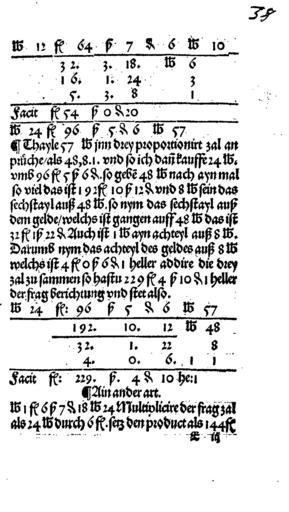 38
℔ 12 fl 64 ß 7 ₰ 6 ℔ 10
32. 3. 18. ℔ 6
16. 1. 24 3
5. 3. 8 1
Facit fl 54 ß 0 ₰ 20
℔ 24 fl 96 ß 5 ₰ 6 ℔ 57
¶ Thayle 57 ℔ jnn drey proportionirt zal an
sprüche/als 48,8.1. vnd so ich dañ kauffe 24 ℔.
vmb 96 fl 5 ß 6 ₰. so gebē 48 ℔ nach ayn mal
so viel das ist 192 fl 10 ß 12 ₰ vnd 8 ℔ sein das
sechstayl auß 48 ℔. so nym das sechstayl auß
dem gelde/welchs ist gangen auff 48 ℔ das ist
32 fl 1 ß 22 ₰ Auch ist 1 ℔ ayn achteyl auß 8 ℔.
Darumb nym das achteyl des geldes auß 8 ℔
welchs ist 4 fl 0 ß 6 ₰ 1 heller addire die drey
zal zu sammen so hastu 229 fl 4 ß 10 ₰ 1 heller
der frag berichtung vnd stet also.
℔ 24 fl: 96 ß 5 ₰ 6 ℔ 57
192. 10. 12 ℔ 48
32. 1. 22 8
4. 0. 6. 1 1
Facit fl: 229. ß. 4 ₰ 10 he:1
¶ Ain ander art.
℔ 1 fl 6 ß 7 ₰ 18 ℔ 24 Multiplicire der frag zal
als 24 ℔ durch 6 fl. setz den product als 144 fl